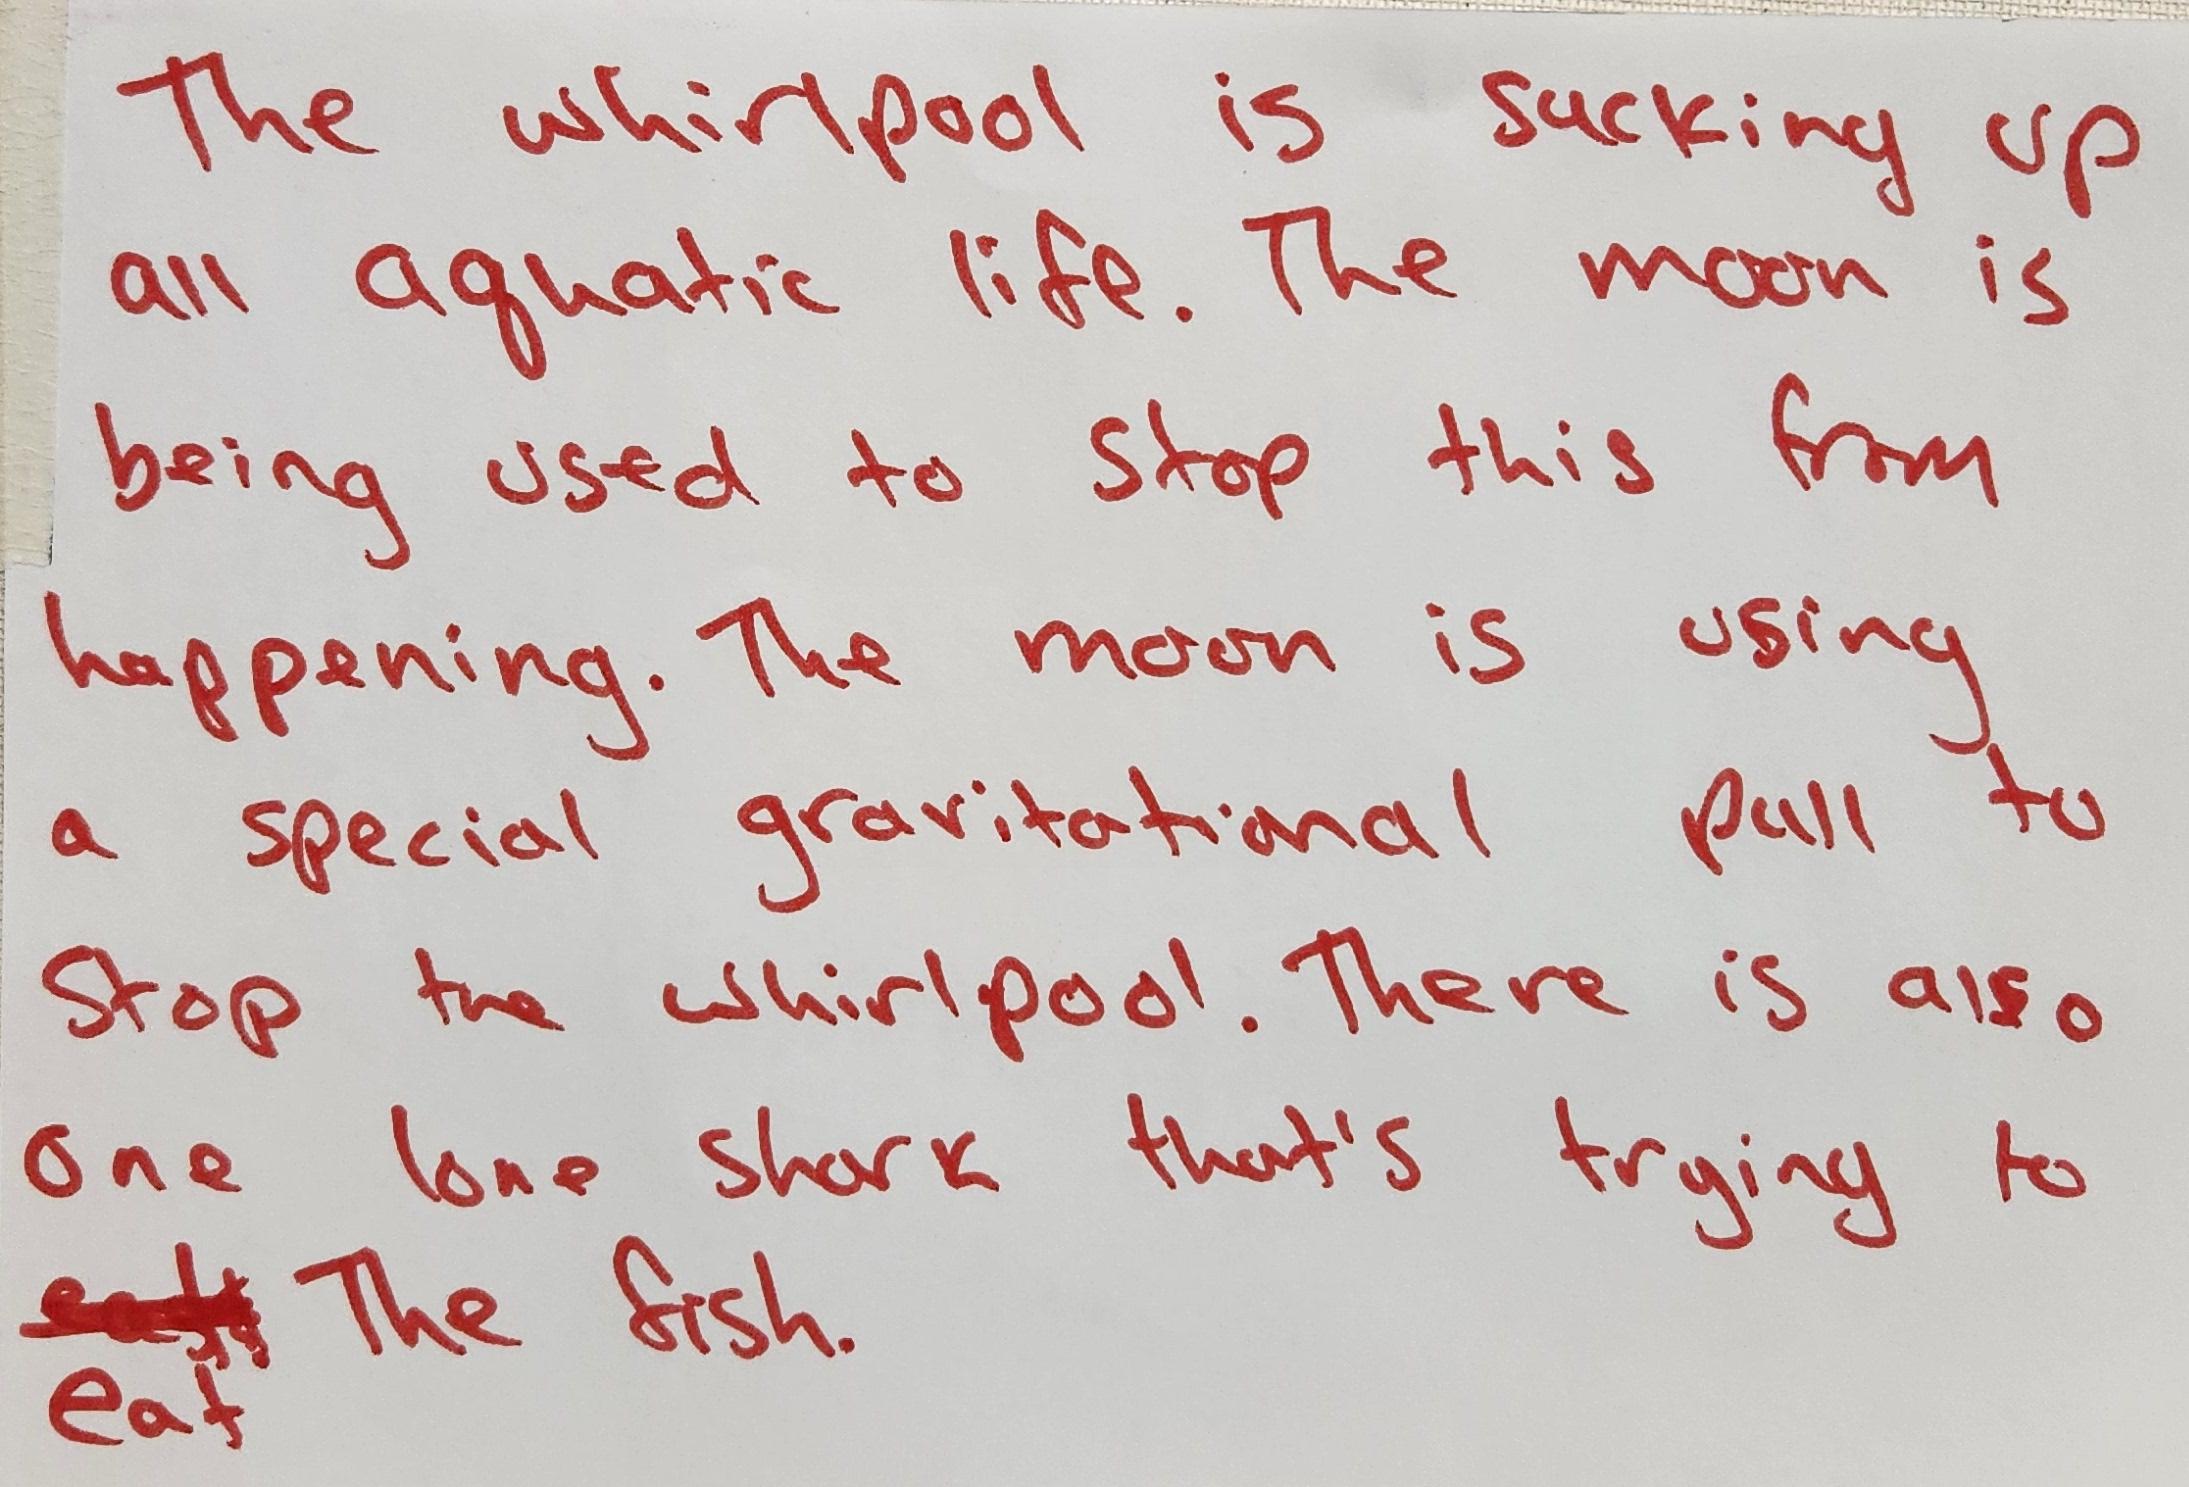 The whirlpool is sucking up
all aquatic life. The moon is
being used to stop this from
happening. The moon is using
a special gravitational pull to
Stop the whirlpool. There is also
one lone shark that's trying to
The fish.
eat